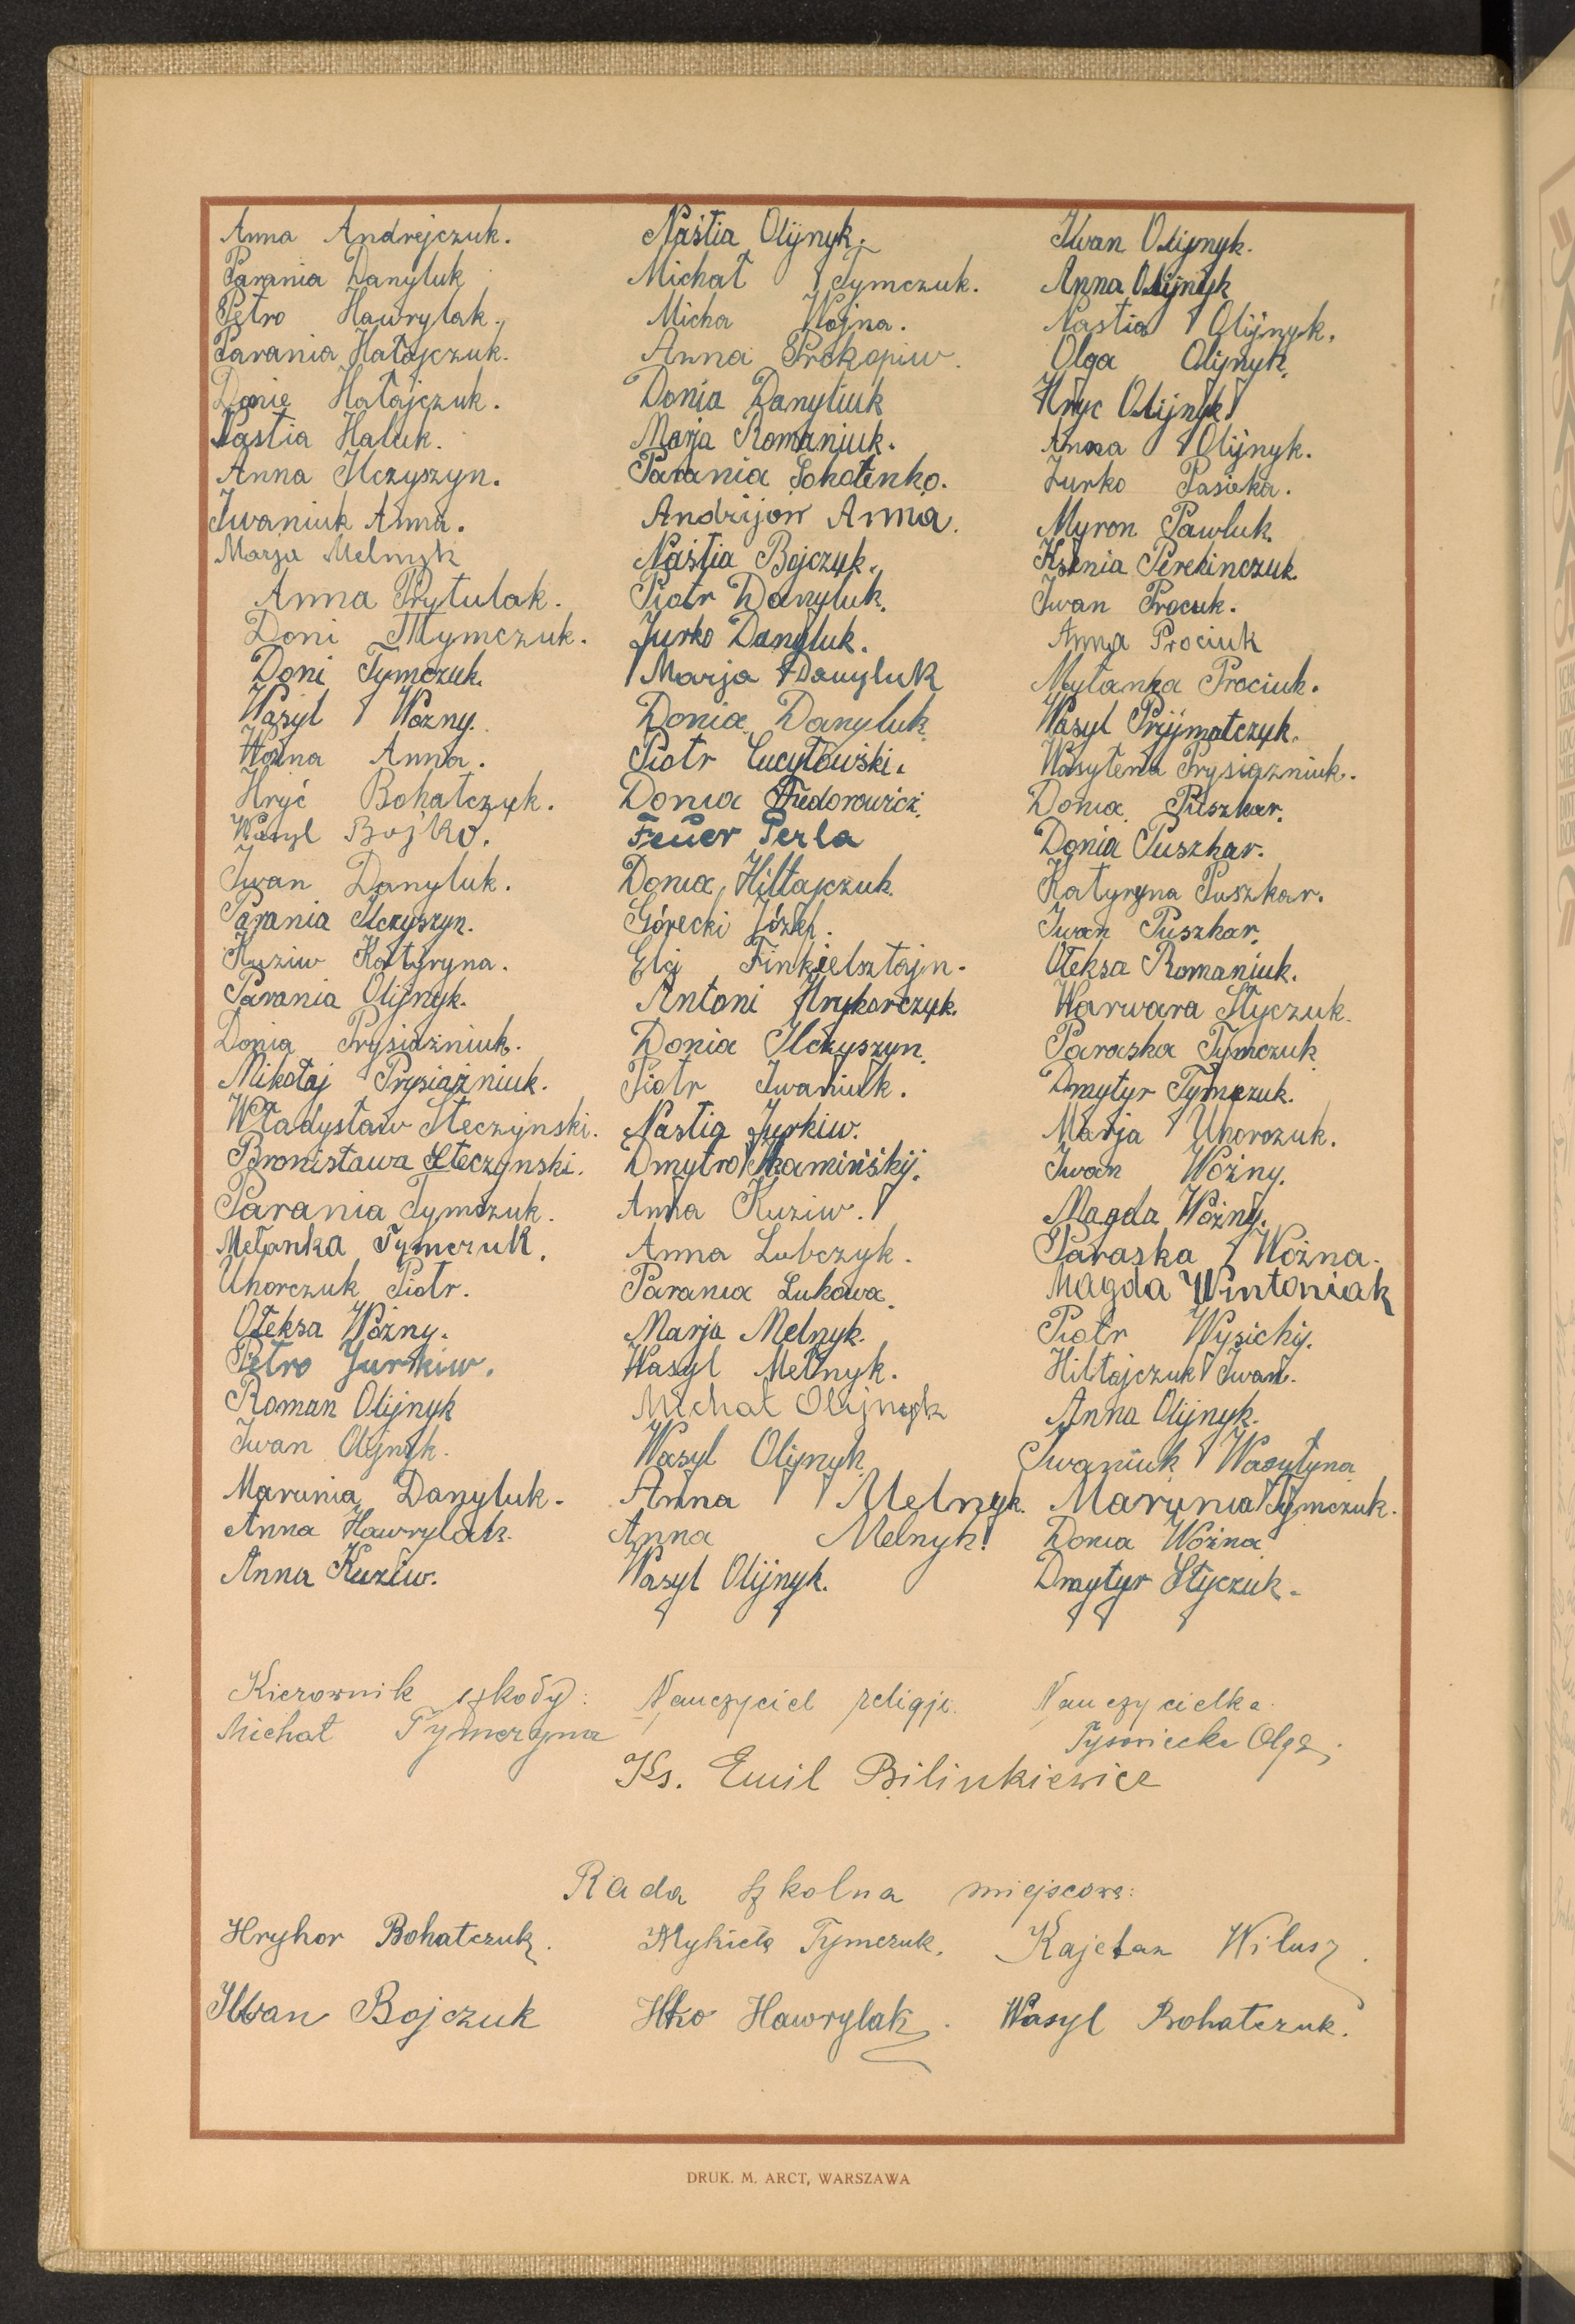 Anna Andrejczuk.
Parania Danyluk
Petro Hawrylak.
Parania Hałajczuk.
Donie Hałajczuk.
Nastia Haluk.
Anna Ilczyszyn.
Iwaniuk Anna.
Marja Melnyk
Anna Prytulak.
Doni Tymczuk.
Doni Tymczuk.
Wasyl Wożny.
Wożna Anna.
Hryć Bohatczyk.
Wasyl Bojko.
Iwan Danyluk.
Parania Ilczyszyn.
Kuziw Katyryna.
Parania Olijnyk.
Donia Prysiażniuk.
Mikołaj Prysiażniuk.
Władysław Steczyjnski.
Bronisława Steczynski.
Parania Tymczuk.
Mełanka Tymczuk.
Uhorczuk Piotr.
Ołeksa Wożny.
Petro Jurkiw.
Roman Olijnyk
Iwan Olijnyk.
Marunia Danyluk.
Anna Hawrylak.
Anna Kuziw.
Naśtia Olijnyk.
Michał Tymczuk.
Micha Wojna.
Anna Prokopiw.
Donia Danyliuk
Marja Romaniuk.
Parania Sokołenko.
Andrijow Anna.
Naśtia Bojczyk.
Piotr Danyluk.
Jurko Danyluk.
Marja Danyluk
Donia Danyluk
Piotr Cucyłowśki.
Donia Fedorowicz.
Feuer Perla
Donia Hiltajczuk.
Górecki Józef.
Elcj Finkielsztajn.
Antoni Hryhorczyk.
Donia Ilczyszyn.
Piotr Iwaniuk.
Nastia Jurkiw.
Dmytro Kamińśkij.
Anna Kuziw.
Anna Lubczyk.
Parania Lukowa.
Marja Melnyk.
Wasyl Melnyk.
Michał Olijnyk
Wasyl Olijnyk
Anna Melnyk.
Anna Melnyk.
Wasyl Olijnyk.
Iwan Olijnyk.
Anna Olijnyk
Nastia Olijnyk.
Olga Olijnyk.
Hryc Olijnyk
Anna Olijnyk.
Jurko Pasieka.
Myron Pawluk.
Ksenia Perekinczuk
Iwan Procuk.
Anna Prociuk
Myłanka Prociuk.
Wasyl Pryjmatczyk.
Wasyłena Prysiazniuk.
Donia Puszkar.
Donia Puszkar.
Katyryna Puszkar.
Iwan Puszkar.
Ołeksa Romaniuk.
Warwara Styczuk.
Paraska Tymczuk
Dmytyr Tymczuk.
Marja Uhorczuk.
Iwan Wożny.
Magda Wożny.
Paraska Wożna.
Magda Wintoniak
Piotr Wysichij.
Hiltajczuk Iwan.
Anna Olijnyk.
Iwaniuk Wasyłyna
Marunia Tymczuk.
Donia Wożna
Dmytyr Styczuk.
Kierownik szkoły:
Michał Tymczyna
Nauczyciel religji.
Ks. Emil Bilinkiewicz
Nauczycielka
Tysowiecka Olga
Rada szkolna miejscowa:
Hryhor Bohatczuk.
Mykieta Tymczuk.
Kajetan Wilusz.
Iwan Bojczuk
Ilko Hawrylak.
Wasyl Bohatczuk.
DRUK. M. ARCT, WARSZAWA